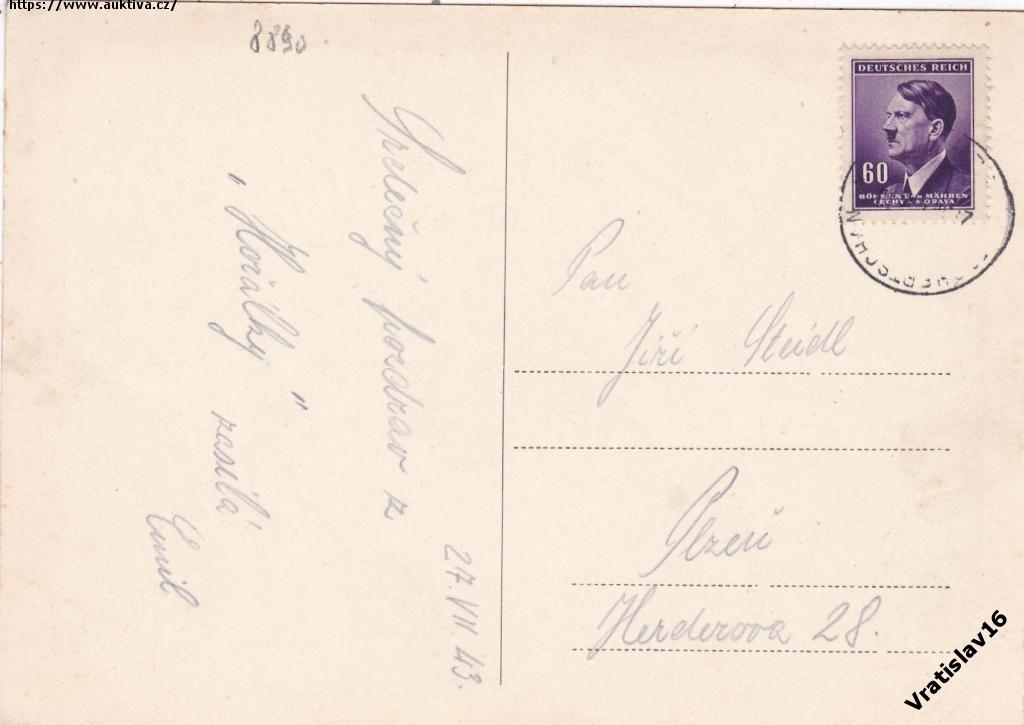 https://www.auktiva.cz/
8890
Srdečný pozdrav z
„Horálky" zasílá
Emil
27. VII. 43.
DEUTSCHES REICH
60
BÖHMEN UND MÄHREN
ČECHY A MORAVA
Pan
Jiří Steidl
Plzeň
Herderova 28.
Vratislav16